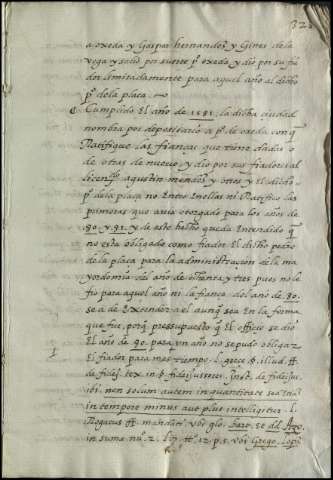 328
a oxeda y Gaspar hernandez y Gines de la
vega y salio por suerte p.º oxeda, y dio por su fia
dor limitadamente para aquel año al dicho
p.º de la placa.
Cumplido El año de 1581. la dicha ciudad
nombra por depositario a p.º de oxeda con q̃
Ratifique las fiancas que tiene dadas o
de otras de nuevo y dio por sus fiadores al
licen.do agustin mendez y otros y El dicho
p.º de la placa no Entro Enellas ni Ratifico las
primeras que avia otorgado para los años de
80. y 81. y de este hecho queda Entendido q̃
no esta obligado como fiador El dicho pedro
de la placa para la administracion de la ma
yordomia del año de ochenta y tres pues no le
fio para aquel año ni la fianca del año de 80.
se a de Extender a el aunq̃ sea En la forma
que fue, porq̃ presupuesto q̃ El officio se dio
El año de 80. para un año no se pudo obligar
El fiador para mas tiempo. l. grece §. illud. ff.
de fidej. tex. in §. fideiussores. inst. de fideiuss.
ibi. non solum autem in quantitate sed etiã
in tempore minus aut plus intelligitur. l.
Rogatus ff. mandati. vbi glo. bar. et dd. Azo.
in summa nu.º 2. l. ff. 12. p. 5. vbi Grego. lopi